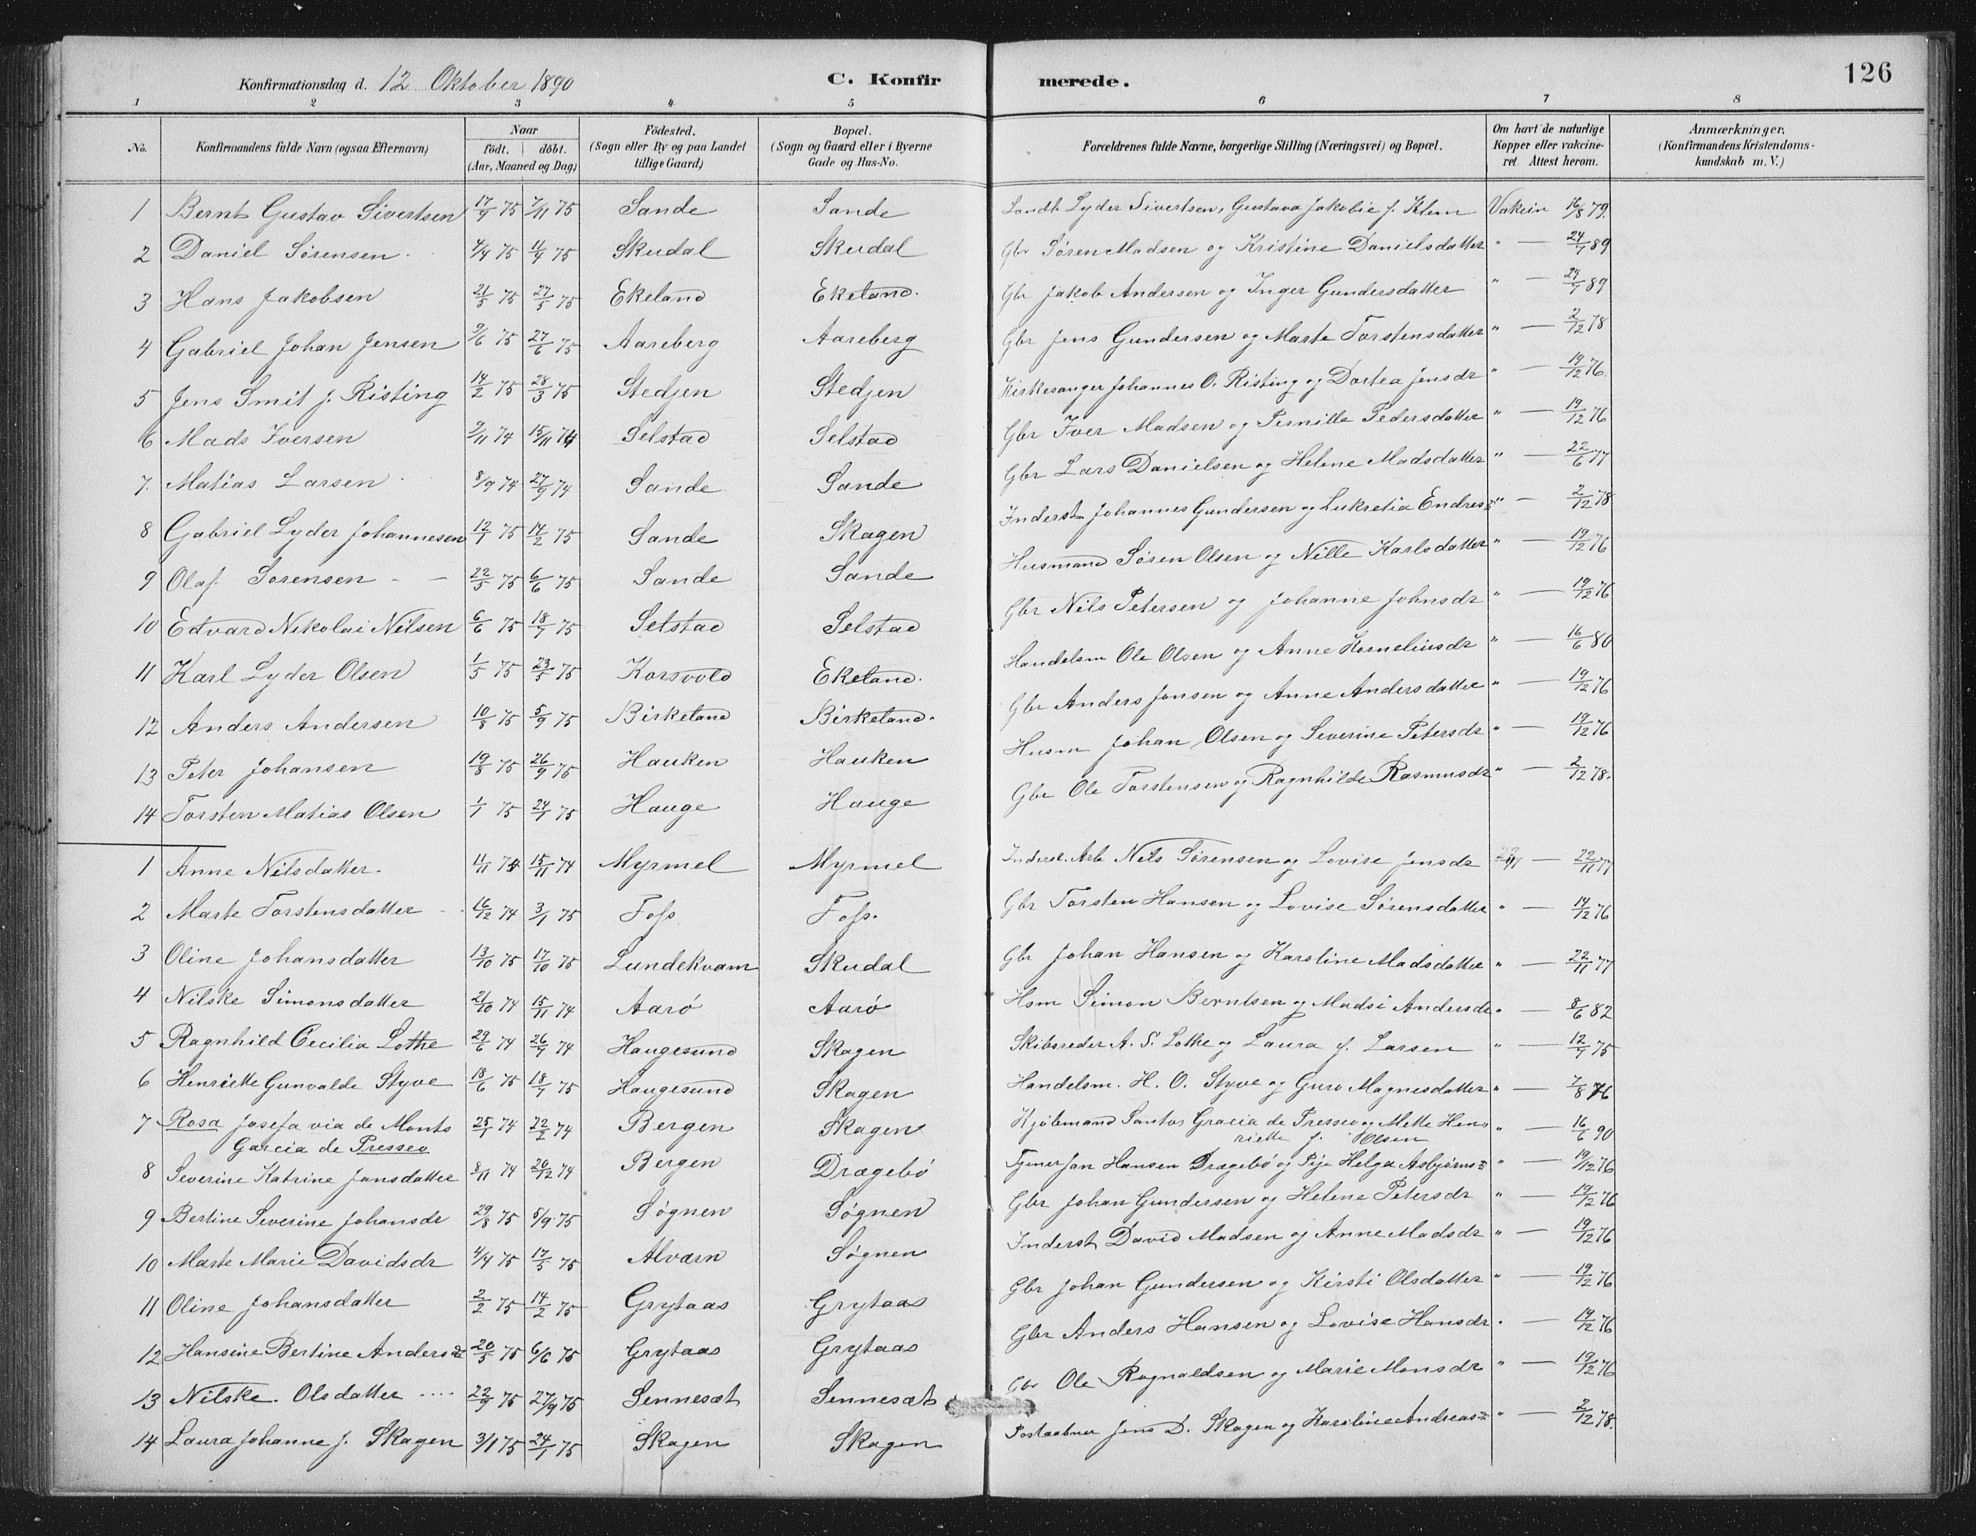 Konfirmationsdag d. 12 Oktober 1890 C. Konfir merede. 126
1 2 3 4 5 6 7 8
No. Konfirmandens fulde Navn (ogsaa Efternavn) Naar födt. döbt. (Aar, Maaned og Dag) Födested. (Sogn eller By og paa Landet tillige Gaard) Bopæl. (Sogn og Gaard eller i Byerne Gade og Hus-No. Forældrenes fulde Navne, borgerlige Stilling (Næringsvei) og Bopæl. Om havt de naturlige Kopper eller vakcineret. Attest herom. Anmærkninger. (Konfirmandens Kristendomskundskab m. V.)
1 Bernt Gustav Sivertsen 17/9 75 7/11 75 Sande Sande Landh Lyder Sivertsen, Gustava Jakobie f. Klem Vakcin 16/8 79.
2 Daniel Sørensen 4/4 75 11/4 75 Skudal Skudal Gbr Søren Madsen og Kristine Danielsdatter " — 24/7 89
3 Hans Jakobsen 21/5 75 27/5 75 Ekeland Ekeland. Gbr Jakob Andersen og Inger Gundersdatter " — 24/7 89
4 Gabriel Johan Jensen 9/6 75 27/6 75 Aareberg Aareberg Gbr Jens Gundersen og Marte Torstensdatter " — 2/12 78
5 Jens Smit J. Risting 14/2 75 28/3 75 Stedjen Stedjen Kirkesanger Johannes O. Risting og Dortea Jensdr " — 19/12 76.
6 Mads Iversen 9/11 74 15/11 74 Selstad Selstad Gbr Iver Madsen og Pernille Pedersdatter " — 19/12 76
7. Matias Larsen 8/9 74 27/9 74 Sande Sande Gbr Lars Danielsen og Helene Madsdatter " — 22/6 77
8 Gabriel Lyder Johannesen 12/1 75 14/2 75 Sande Skagen Inderst Johannes Gundersen og Lukretia Endres " — 2/12 78
9 Olaf Sørensen 22/5 75 6/6 75 Sande Sande Husmand Søren Olsen og Nille Karlsdatter " — 19/12 76
10 Edvard Nikolai Nilsen 6/6 75 18/7 75 Selstad Selstad Gbr Nils Petersen og Johanne Johnsdr " — 19/12 76
11 Karl Lyder Olsen 1/5 75 23/5 75 Korsvold Ekeland. Handelsm Ole Olsen og Anne Korneliusdr " — 16/6 80
12 Anders Andersen 10/8 75 5/9 75 Birkeland Birkeland. Gbr Anders Jonsen og Anne Andersdatter " — 19/12 76
13 Peter Johansen 19/8 75 26/9 75 Hauken Hauken Husm Johan Olsen og Severine Petersdr " — 19/12 76
14 Torsten Matias Olsen 1/1 75 24/1 75 Hauge Hauge Gbr Ole Torstensen og Ragnhilde Rasmusdr " — 2/12 78.
1 Anne Nilsdatter. 11/11 74 15/11 74 Myrmel Myrmel Inderst. Arb Nils Sørensen og Lovise Jensdr — 22/11 77
2 Marte Torstensdatter 16/12 74 3/1 75 Foss Foss. Gbr Torsten Hansen og Lovise Sørensdatter " — 14/12 76
3 Oline Johansdatter 13/10 75 17/10 75 Lundekvam Skudal Gbr Johan Hansen og Karoline Madsdatter " — 22/11 77
4 Nilske Simonsdatter 21/10 74 15/11 74 Aarø Aarø Hsm Simon Berntsen og Madsi Andersdr " — 8/6 82
5 Ragnhild Cecilia Lothe 29/6 74 26/7 74 Haugesund Skagen Skibsreder A. S. Lothe og Laura f. Larsen " — 12/7 75
6 Henriette Gunvalde Styve 18/6 75 18/7 75 Haugesund Skagen Handelsm. H. O. Styve og Guro Magnesdatter " — 7/8 76
7 Rosa Josefa via de Monts Garcia de Presseo 25/1 74 22/2 74 Bergen Skagen Kjøbmand Santos Gracia de Presseo og Mette Henriette f. Olsen " — 16/6 90
8 Severine Katrine Jansdatter 8/11 74 26/12 74 Bergen Drægebø Tjener Jan Hansen Drægebø og Pige Helga Asbjørns " — 19/12 76
9 Bertine Severine Johansdr 29/8 75 5/9 75 Søgnen Søgnen Gbr Johan Gundersen og Helene Petersdr " — 19/12 76
10 Marte Marie Davidsdr 4/4 75 17/5 75 Alværn Søgnen Inderst David Madsen og Anne Madsdr " — 19/12 76
11 Oline Johansdatter 2/2 75 14/2 75 Grytaas Grytaas Gbr Johan Gundersen og Kirsti Olsdatter " — 19/12 76
12 Hansine Bertine Andersdr 20/5 75 6/6 75 Grytaas Grytaas Gbr Anders Hansen og Lovise Hansdr. — 19/12 76
13 Nilske Olsdatter 22/9 75 27/9 75 Sennesæt Sennesæt Gbr Ole Ragnaldsen og Marie Monsdr " — 19/12 76
14 Laura Johanne J. Skagen 3/1 75 24/1 75 Skagen Skagen Postaabner Jens D. Skagen og Karoline Andreas " — 2/12 78.